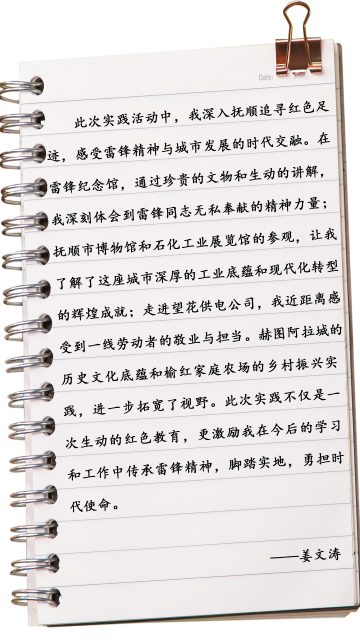 Date:
此次实践活动中，我深入抚顺追寻红色足
迹，感受雷锋精神与城市发展的时代交融。在
雷锋纪念馆，通过珍贵的文物和生动的讲解，
我深刻体会到雷锋同志无私奉献的精神力量；
抚顺市博物馆和石化工业展览馆的参观，让我
了解了这座城市深厚的工业底蕴和现代化转型
的辉煌成就；走进望花供电公司，我近距离感
受到一线劳动者的敬业与担当。赫图阿拉城的
历史文化底蕴和榆红家庭农场的乡村振兴实
践，进一步拓宽了视野。此次实践不仅是一
次生动的红色教育，更激励我在今后的学习
和工作中传承雷锋精神，脚踏实地，勇担时
代使命。
——姜文涛